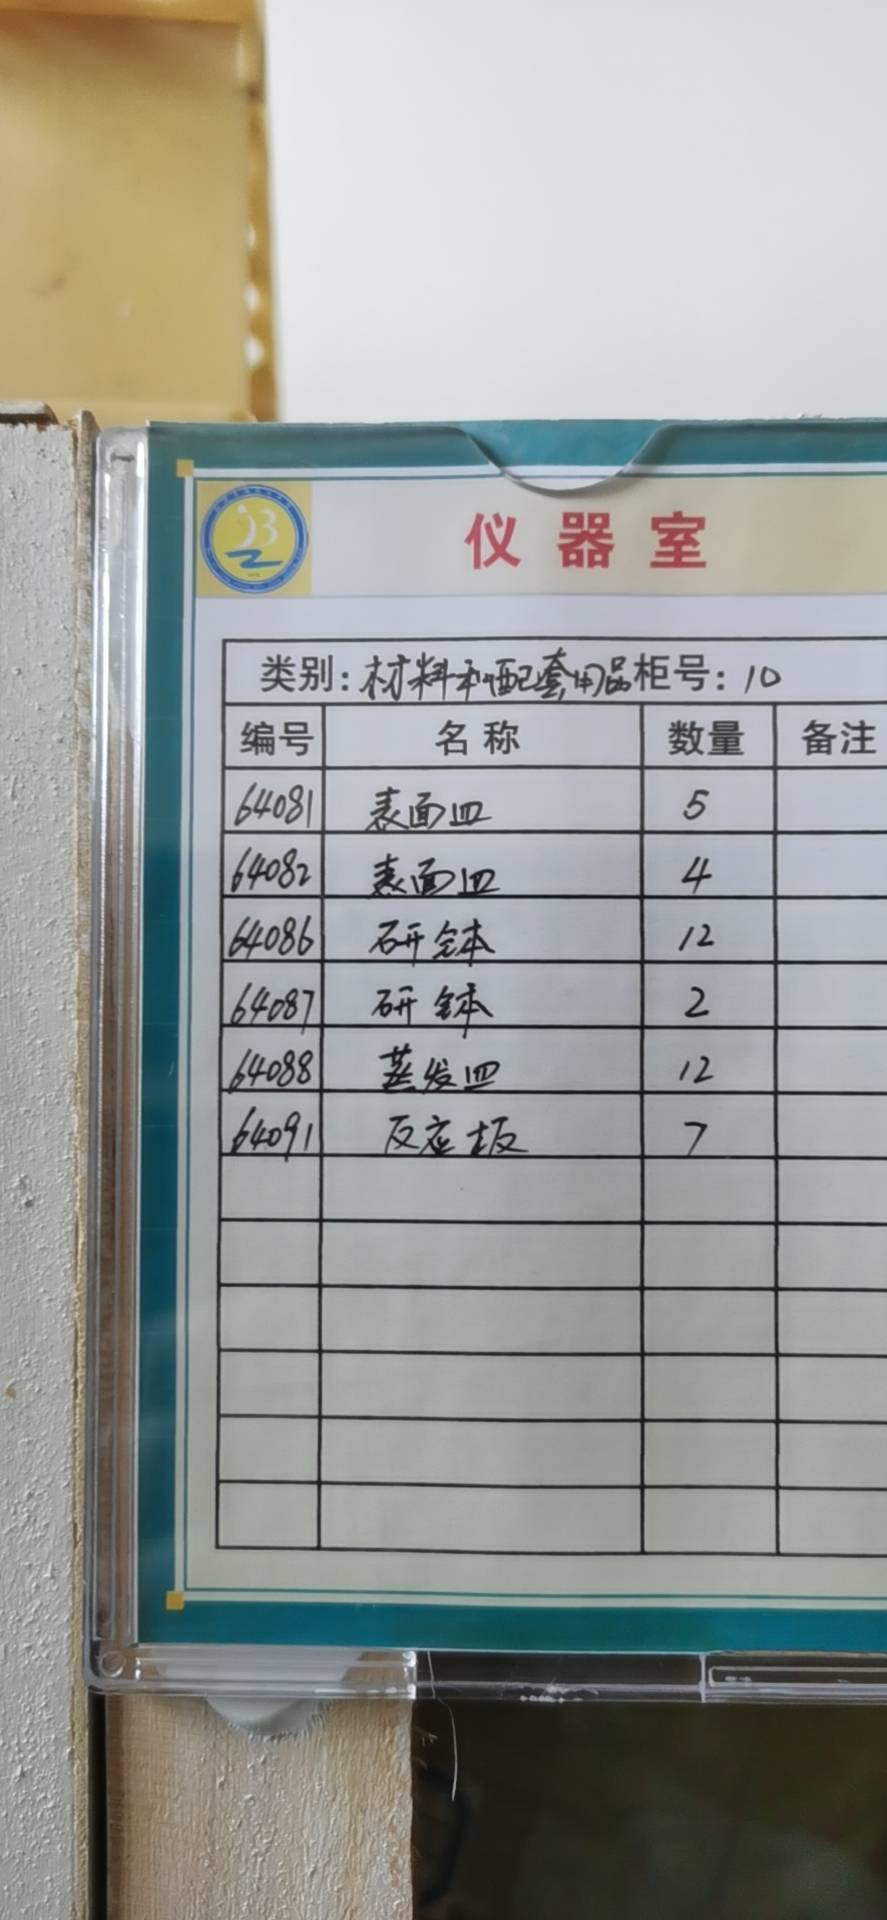 仪器室
类别:材料和配套用品柜号:10
编号 名称 数量 备注
64081 表面皿 5
64082 表面皿 4
64086 研钵 12
64087 研钵 2
64088 蒸发皿 12
64091 反应板 7